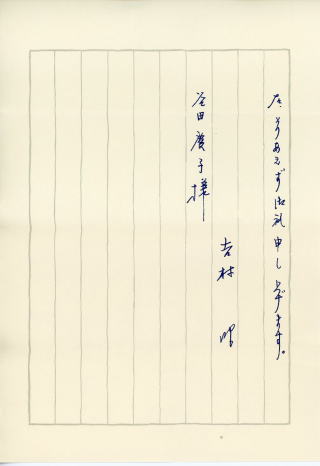 が、とりあえず御礼申し上げます。
吉村 昭
谷田慶子様